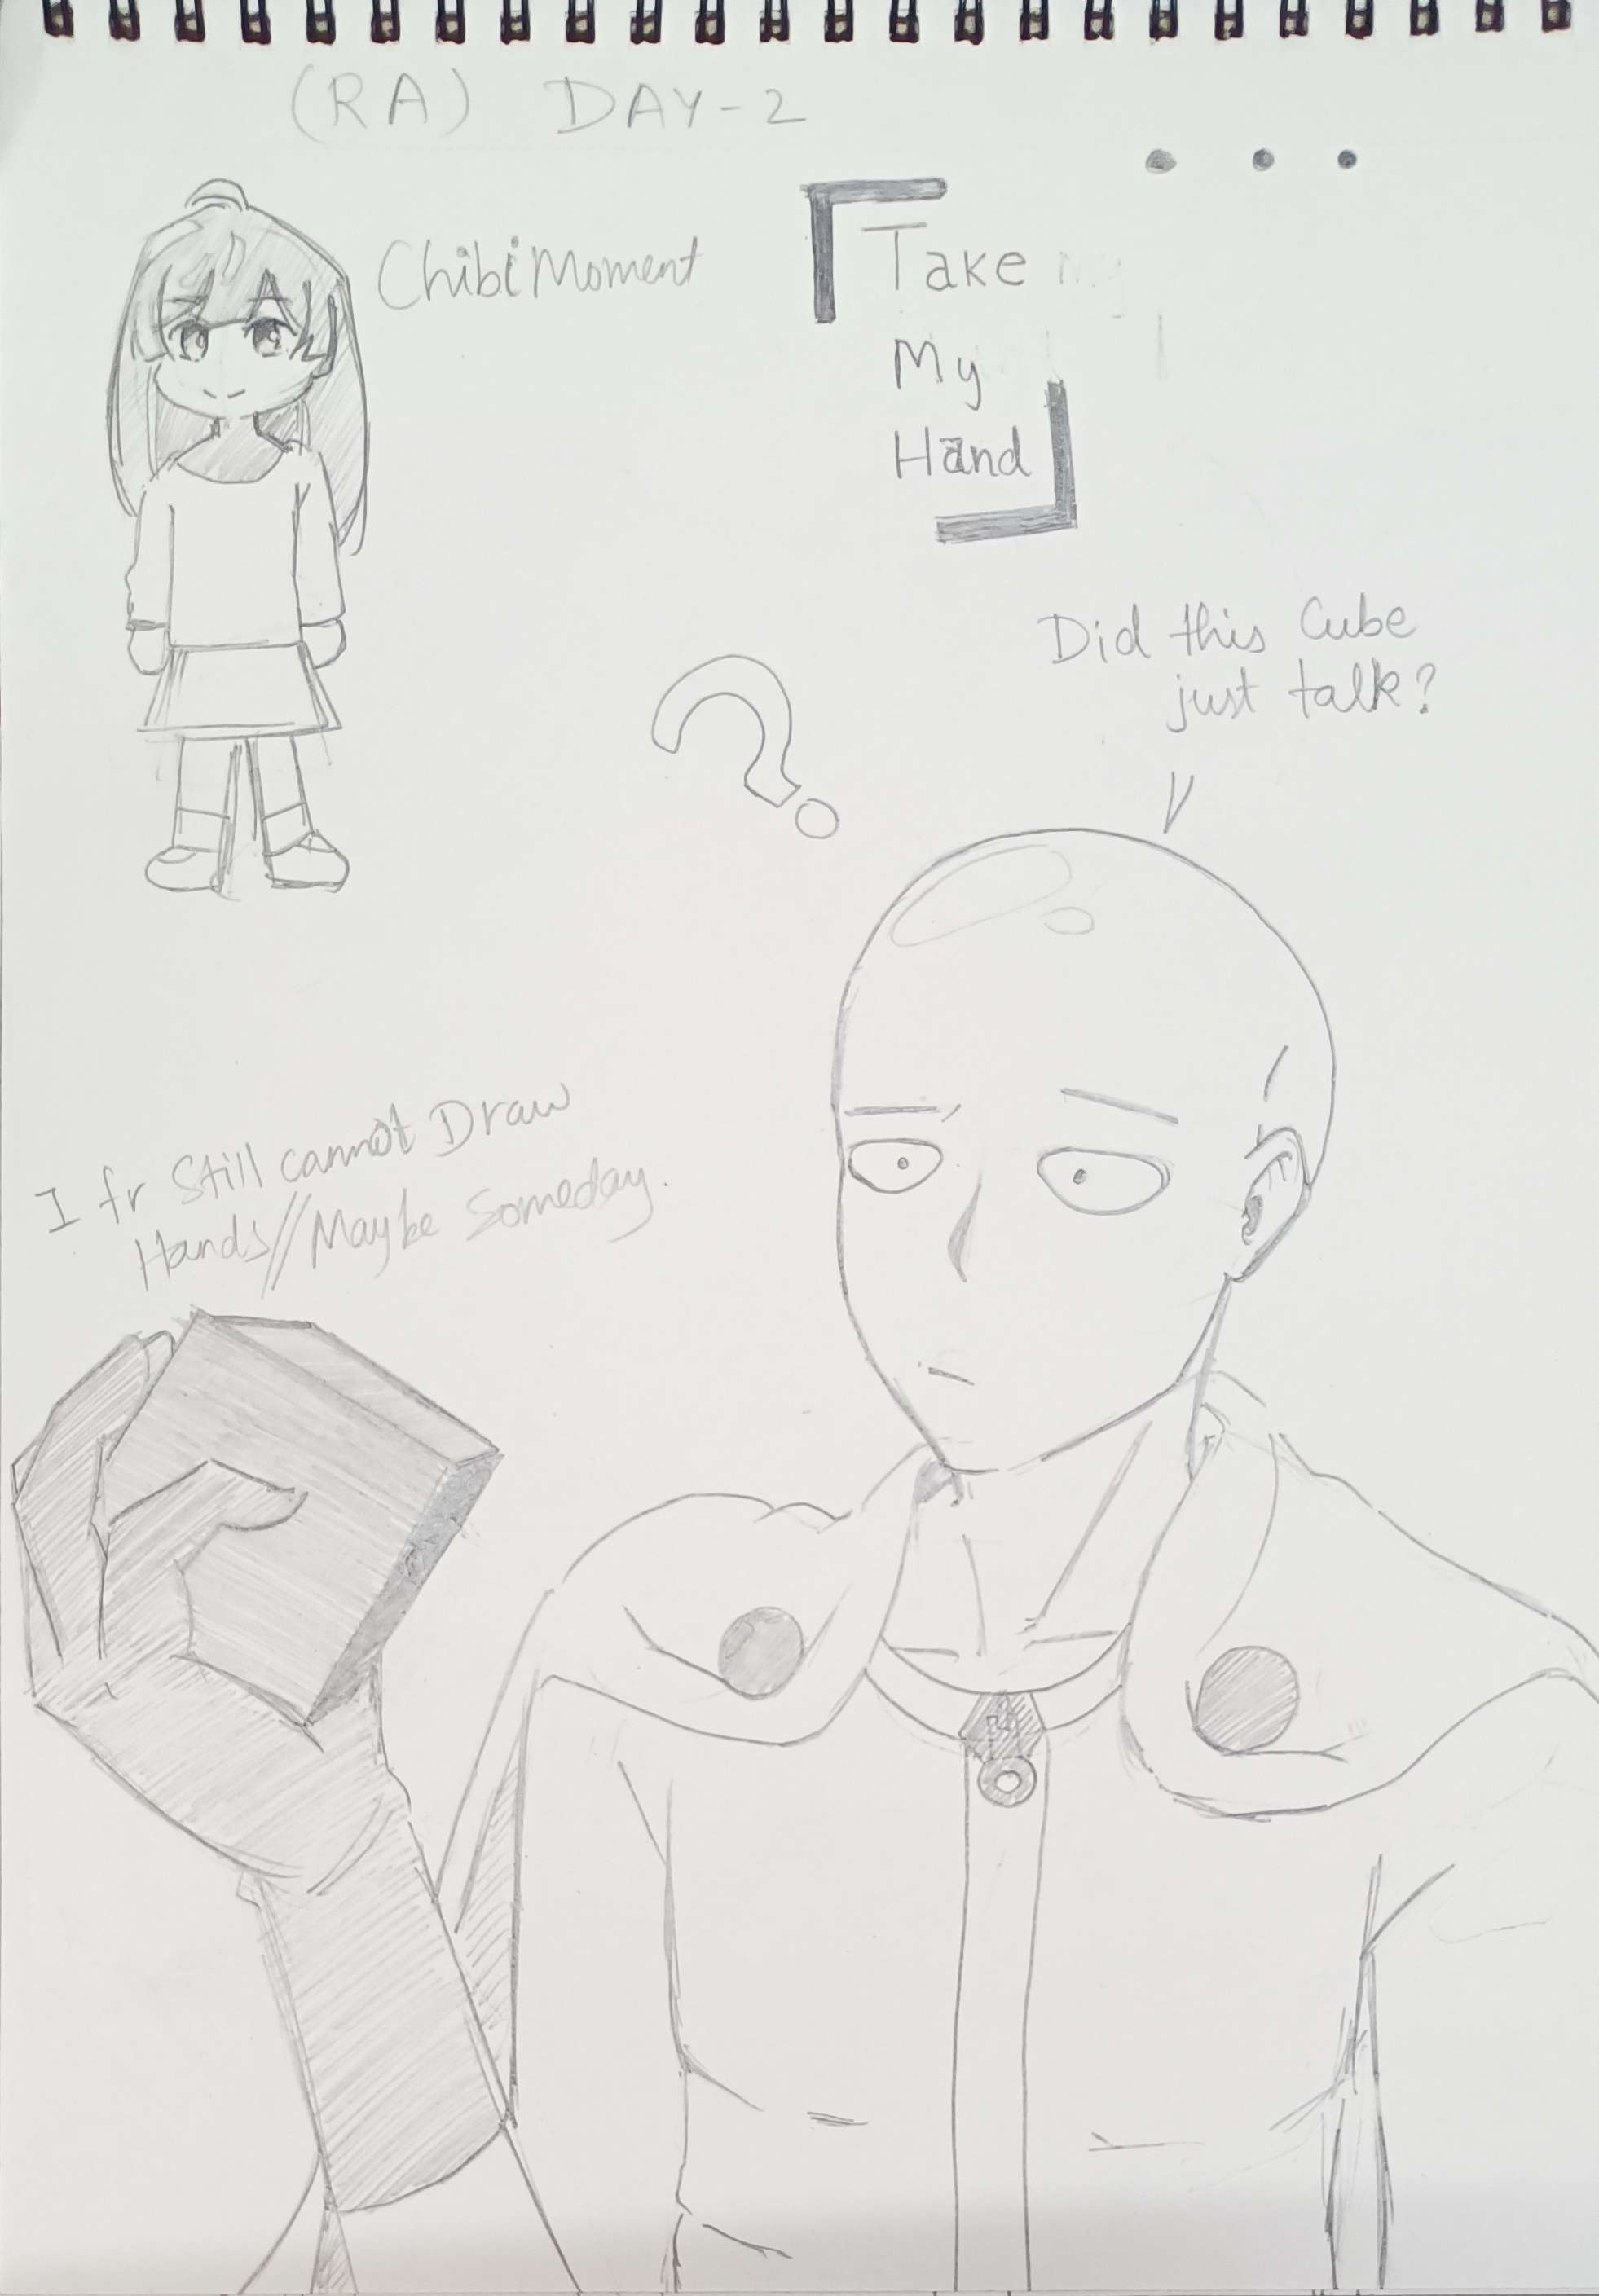 (RA) DAY-2
Chibi Moment
Take
My
Hand
Did this Cube
just talk?
I fr Still cannot Draw
Hands//Maybe Someday.